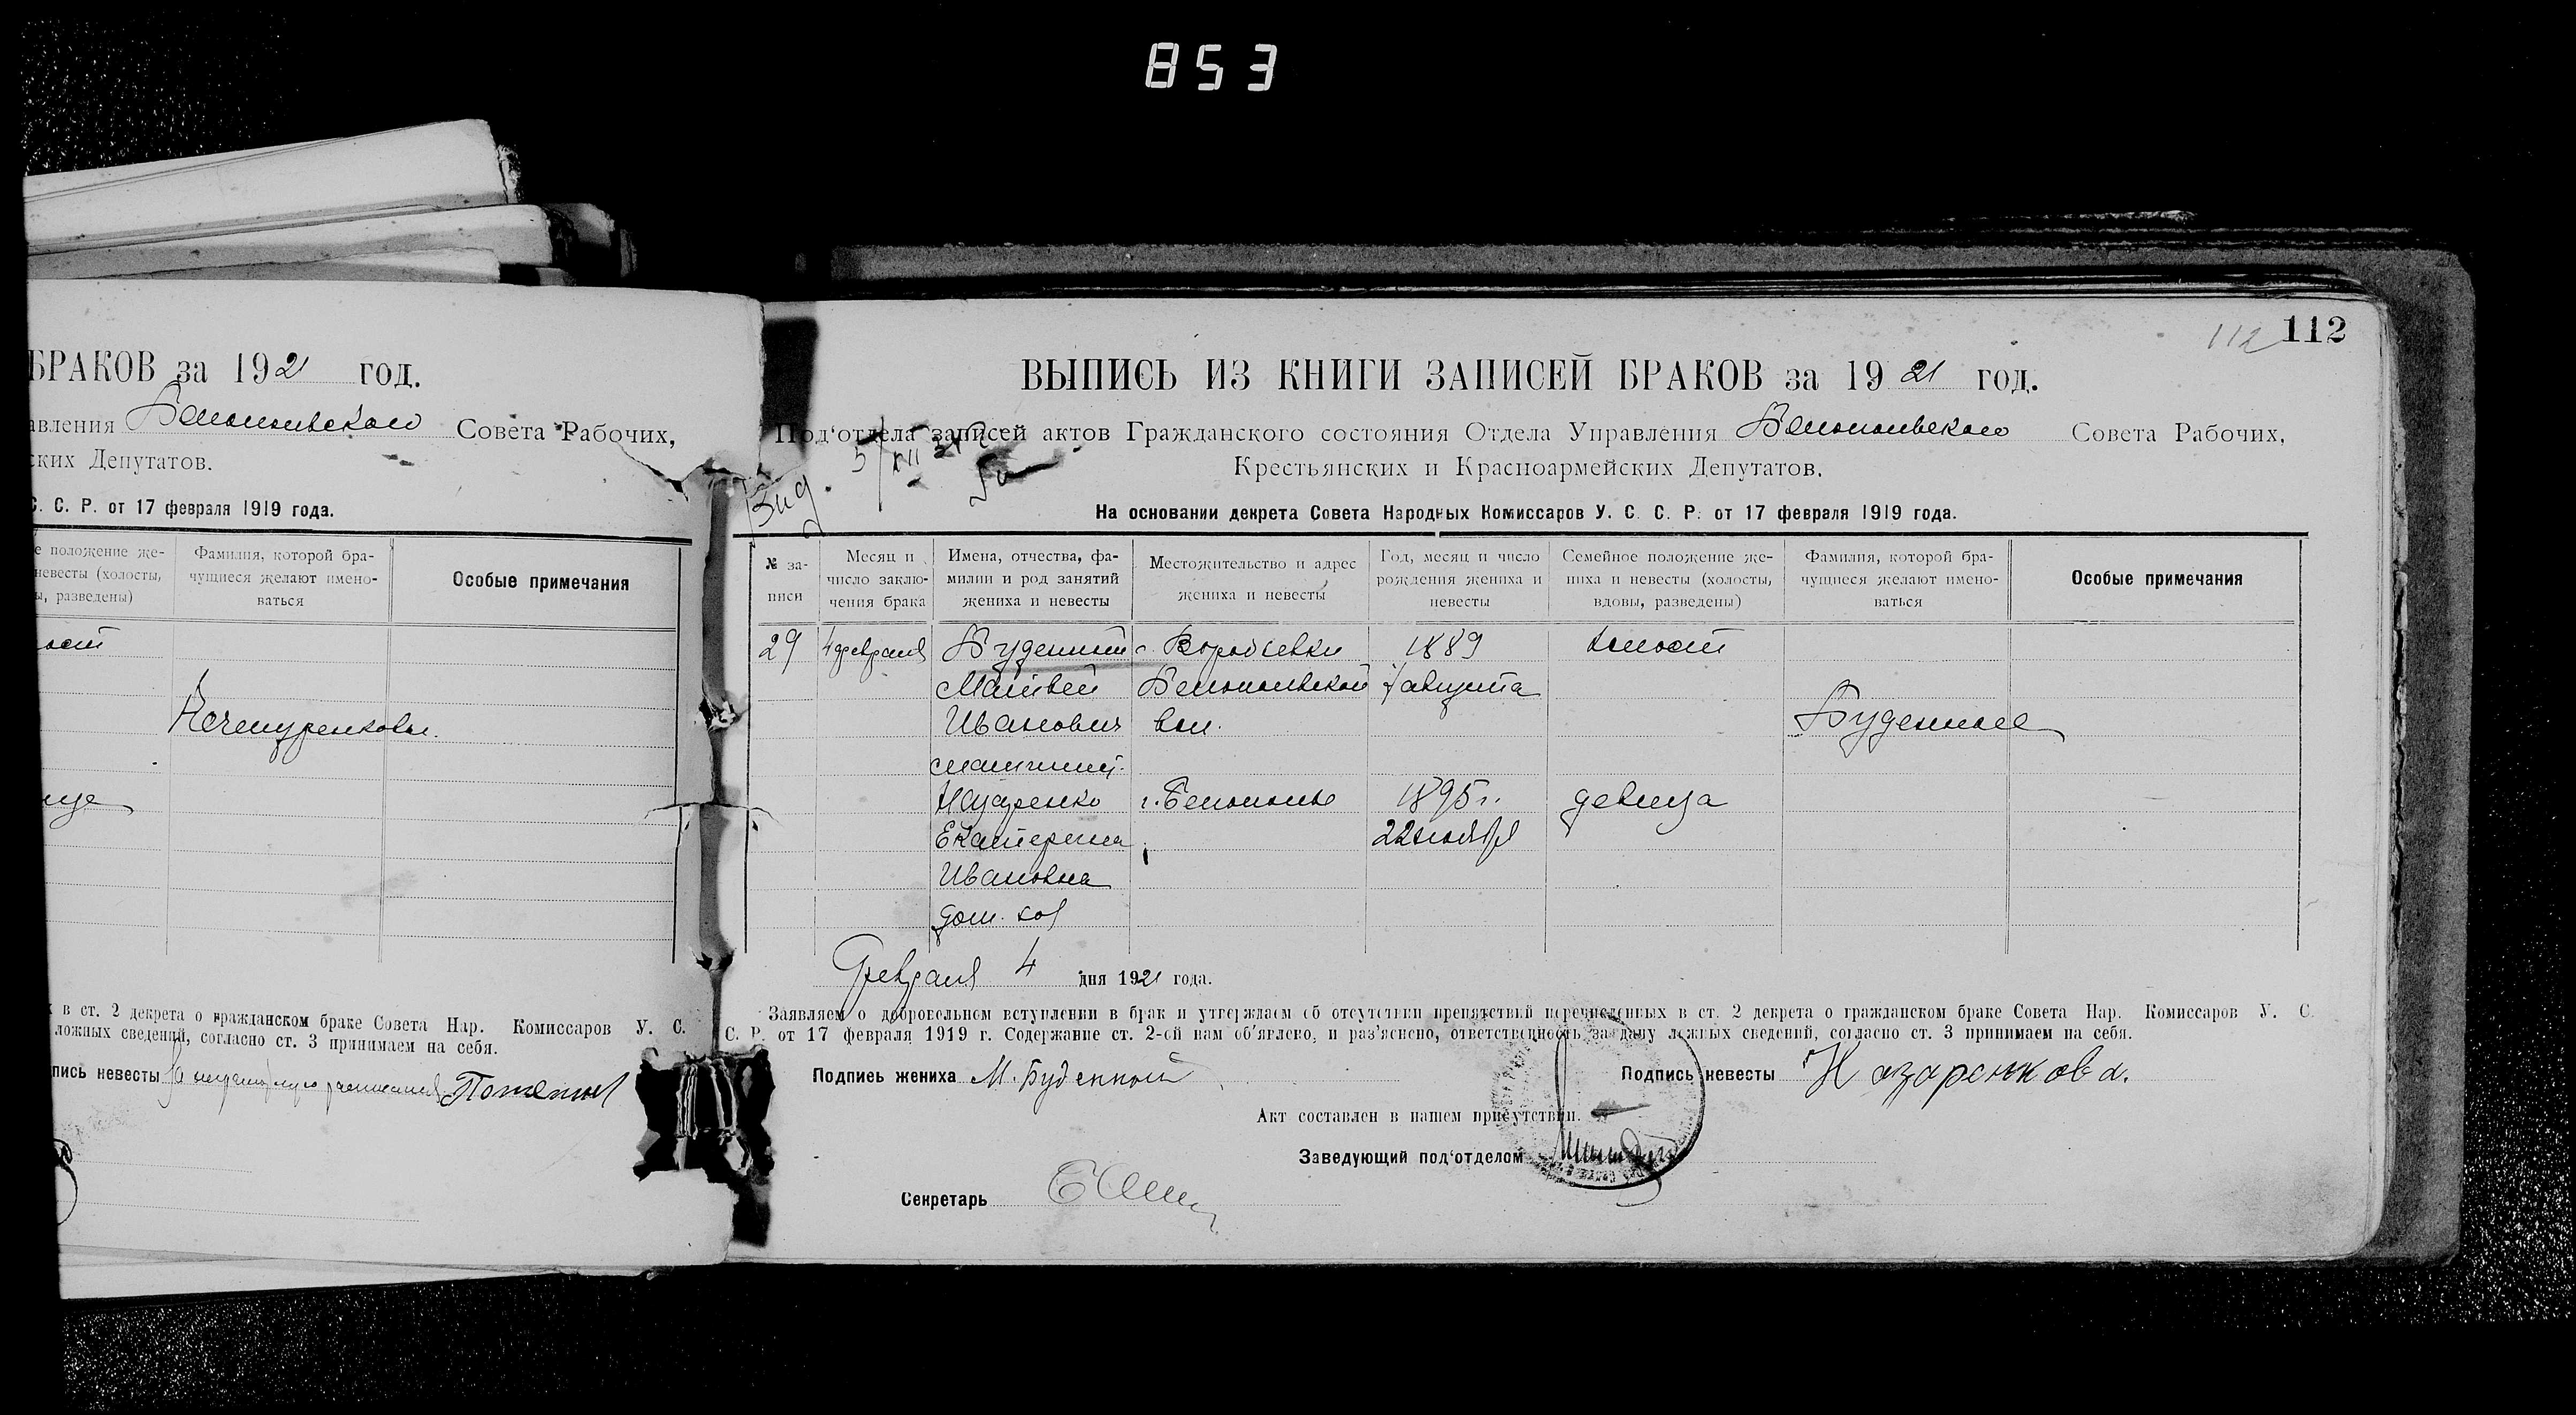 853
БРАКОВ за 1921 год.
авления Белопольского Совета Рабочих,
ских Депутатов.
С. С. Р. от 17 февраля 1919 года.
е положение же-
невесты (холосты,
ы, разведены)
Фамилия, которой бра-
чущиеся желают имено-
ваться
Особые примечания
ост
Кочемуренковы.
ица
х в ст. 2 декрета о гражданском браке Совета Нар. Комиссаров У. С.
ложных сведений, согласно ст. 3 принимаем на себя.
пись невесты За неграмотную расписался
112 112
ВЫПИСЬ ИЗ КНИГИ ЗАПИСЕЙ БРАКОВ за 1921 год.
Под‘отдела записей актов Гражданского состояния Отдела Управления Белопольского Совета Рабочих,
Крестьянских и Красноармейских Депутатов.
На основании декрета Совета Народных Комиссаров У. С. С. Р. от 17 февраля 1919 года.
№ за-
писи
Месяц и
число заклю-
чения брака
Имена, отчества, фа-
милии и род занятий
жениха и невесты
Местожительство и адрес
жениха и невесты
Год, месяц и число
рождения жениха и
невесты
Семейное положение же-
ниха и невесты (холосты,
вдовы, разведены)
Фамилия, которой бра-
чущиеся желают имено-
ваться
Особые примечания
29 4 февраля Буденный с. Воробьевки 1889 холост
Матвей Белопольской августа
Иванович вол. Буденные
машинист.
Назаренко г. Белополье 1895 г. девица
Екатерина 22 ноября
Ивановна
дом. хоз
Февраля 4 дня 1921 года.
Заявляем о добровольном вступлении в брак и утверждаем об отсутствии препятствий перечисленных в ст. 2 декрета о гражданском браке Совета Нар. Комиссаров У. С.
С. Р. от 17 февраля 1919 г. Содержание ст. 2-ой нам об‘явлено, и раз‘яснено, ответственность за дачу ложных сведений, согласно ст. 3 принимаем на себя.
Подпись жениха М. Буденный Подпись невесты Назаренькова.
Акт составлен в нашем присутствии.
Заведующий под‘отделом
Секретарь